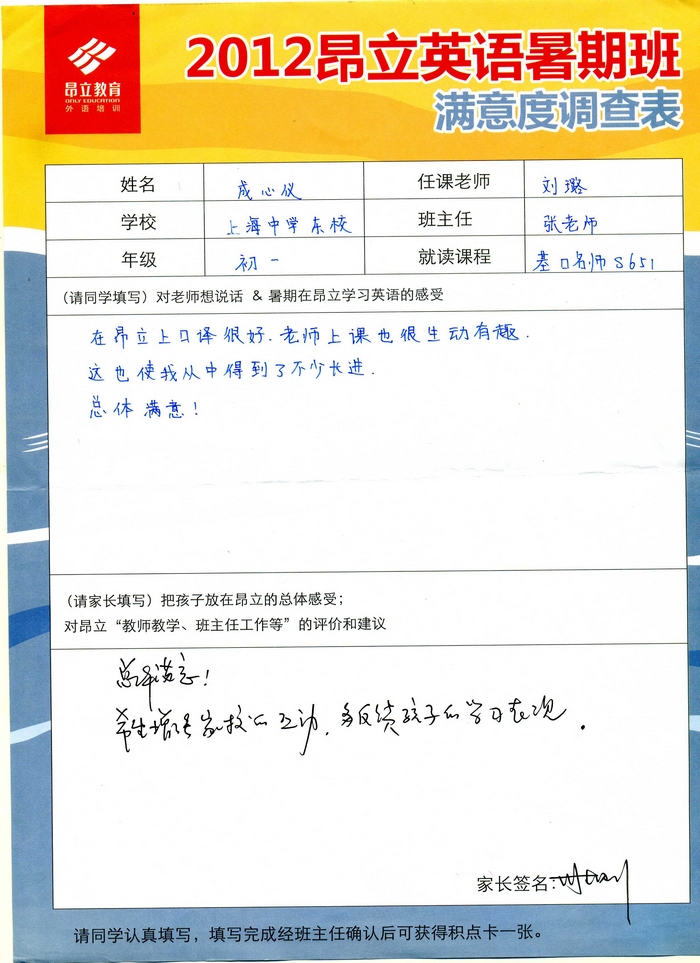 昂立教育
ONLY EDUCATION
外语培训
2012昂立英语暑期班
满意度调查表
姓名 成心仪 任课老师 刘璐
学校 上海中学东校 班主任 张老师
年级 初一 就读课程 基口名师S651
(请同学填写) 对老师想说话 & 暑期在昂立学习英语的感受
在昂立上口译很好.老师上课也很生动有趣.
这也使我从中得到了不少长进.
总体满意!
(请家长填写) 把孩子放在昂立的总体感受;
对昂立“教师教学、班主任工作等”的评价和建议
总体满意!
希望增强家校的互动,多反馈孩子的学习表现.
家长签名:
请同学认真填写,填写完成经班主任确认后可获得积点卡一张。